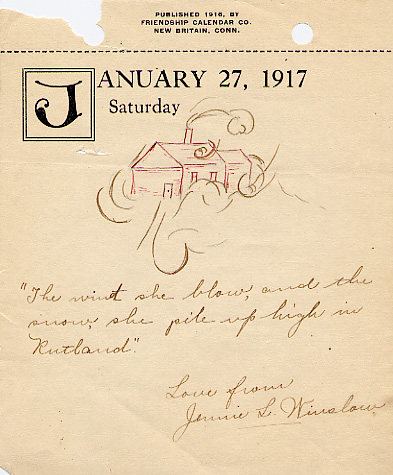 PUBLISHED 1916, BY
FRIENDSHIP CALENDAR CO.
NEW BRITAIN, CONN.
JANUARY 27, 1917
Saturday
"The wint she blow, and the
snow, she pile up high in
Rutland".
Love from
Jennie L. Winslow